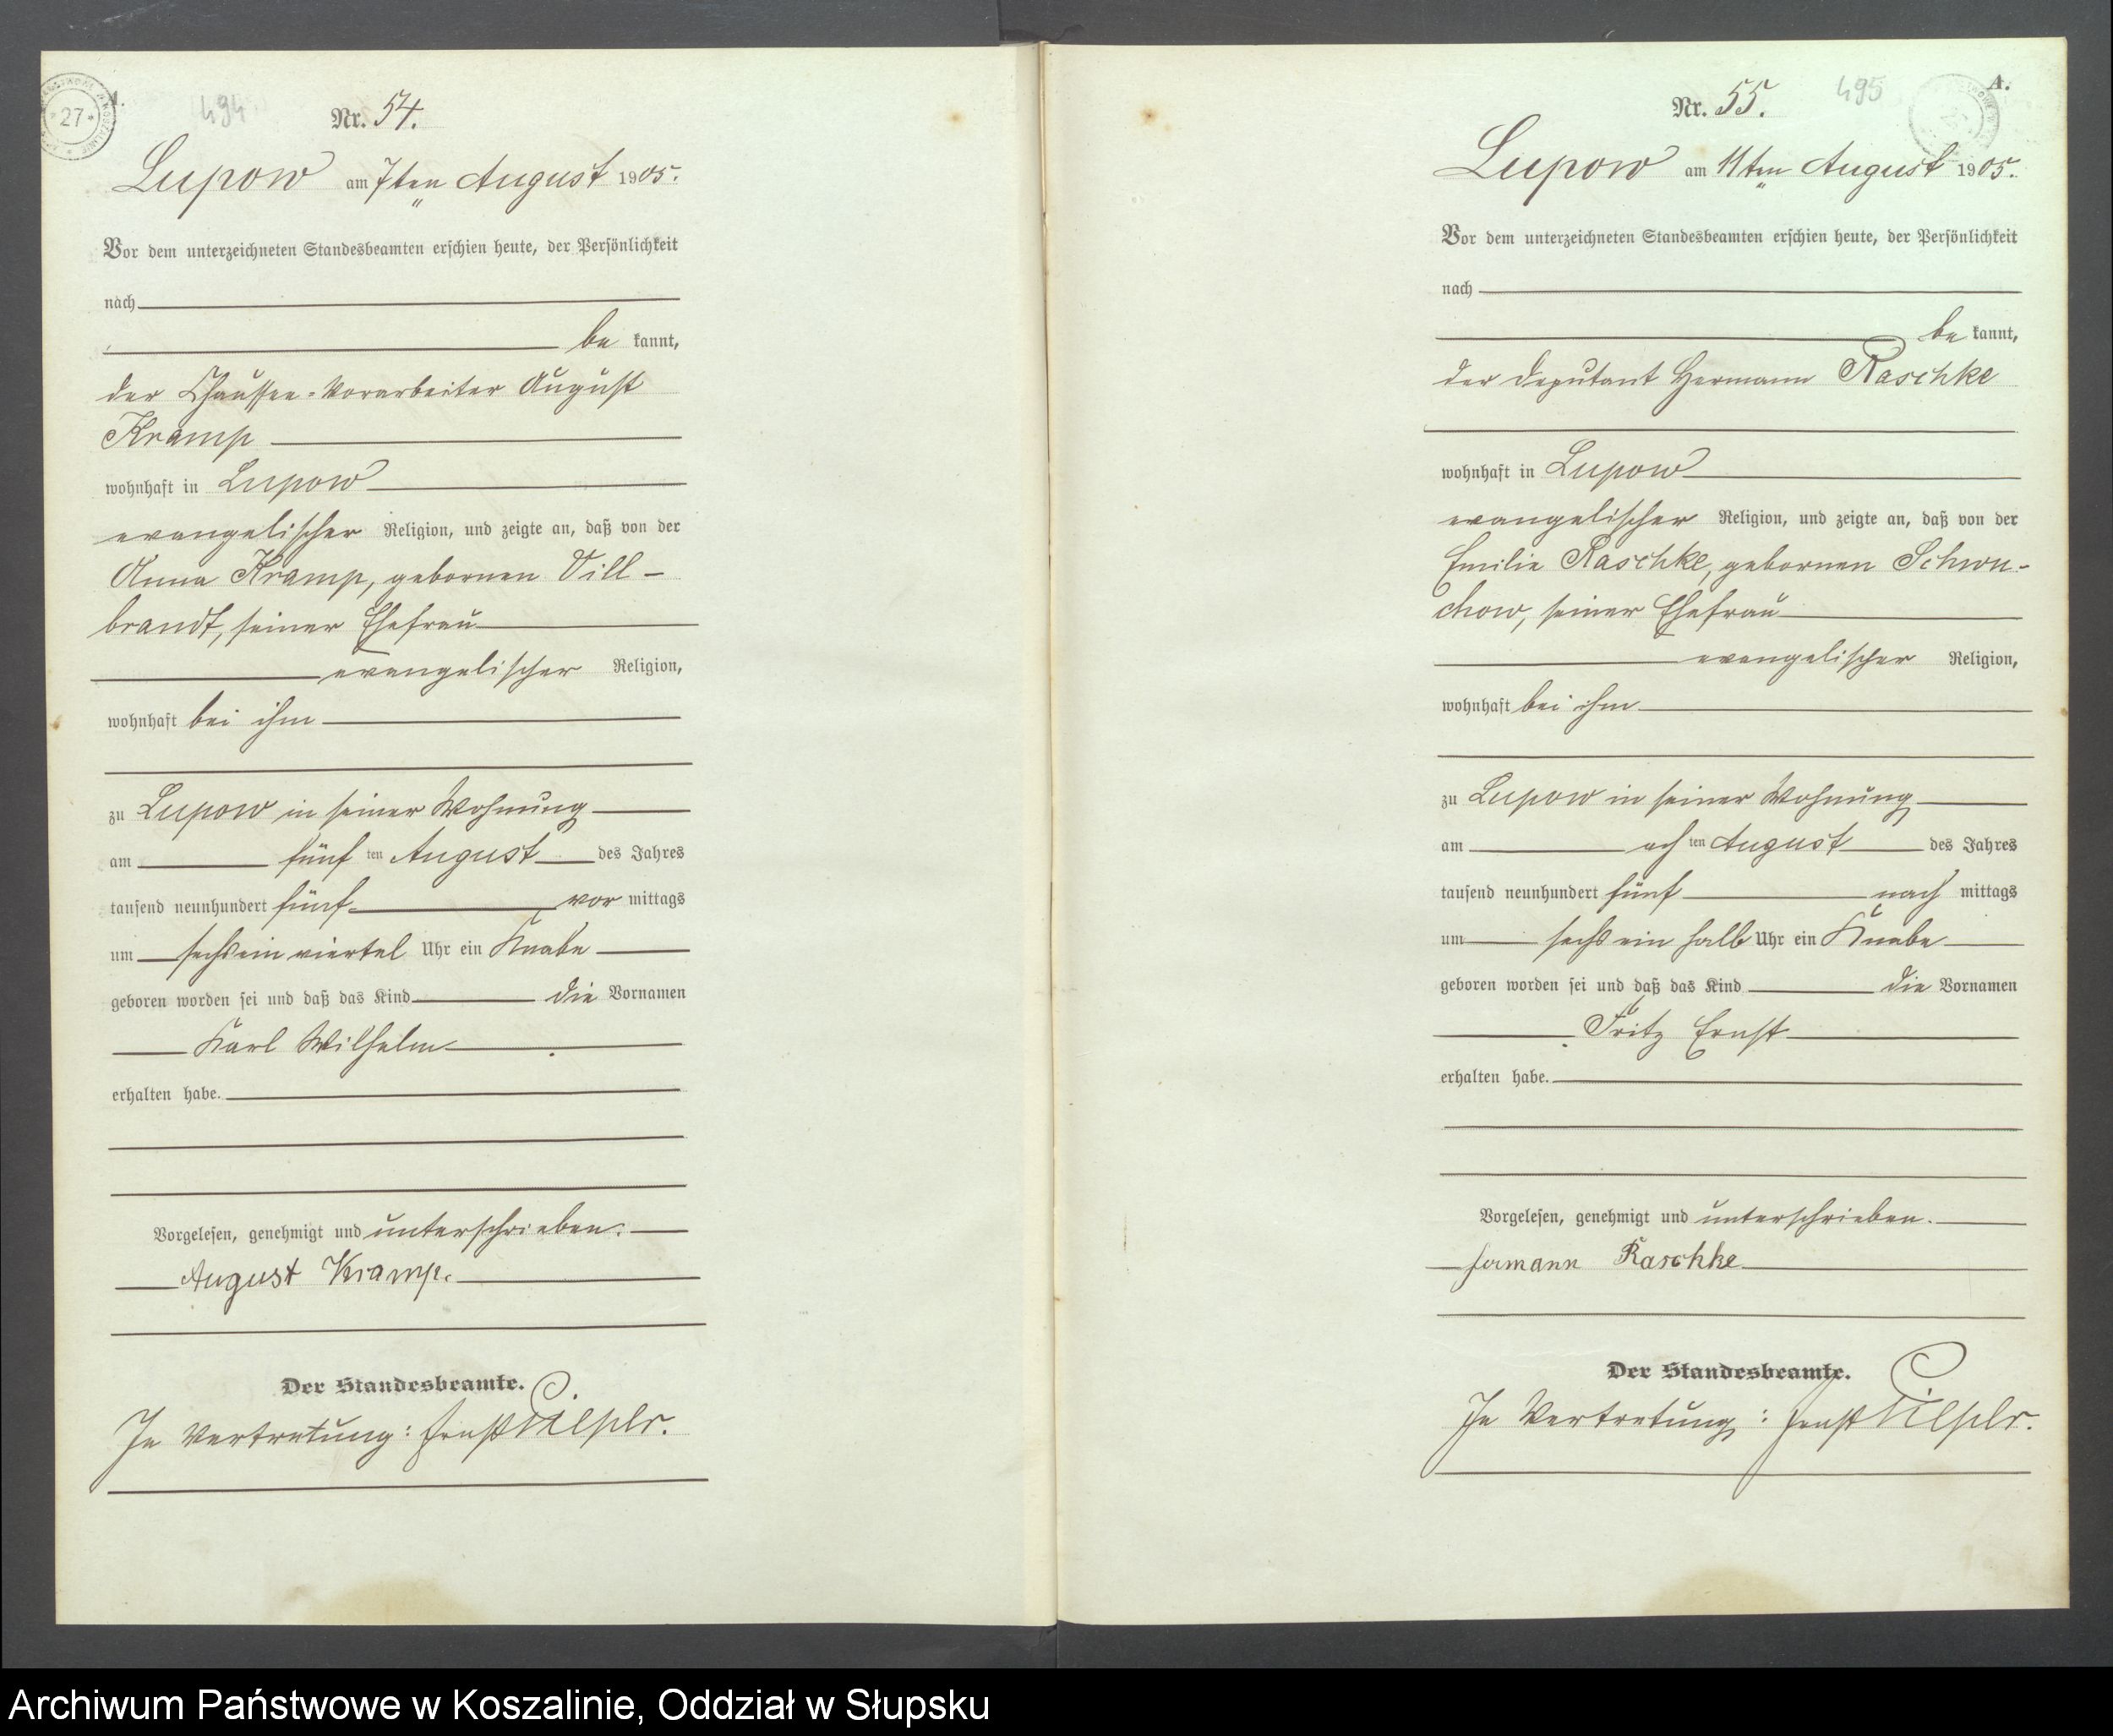 27
A.
494
Nr. 54.
Lupow am 7ten August 1905.
Vor dem unterzeichneten Standesbeamten erschien heute, der Persönlichkeit
nach
be kannt,
der Chaussee-Vorarbeiter August
Kramp
wohnhaft in Lupow
evangelischer Religion, und zeigte an, daß von der
Anna Kramp, gebornen Vill-
brandt, seiner Ehefrau
evangelischer Religion,
wohnhaft bei ihm
zu Lupow in seiner Wohnung
am fünf ten August des Jahres
tausend neunhundert fünf vor mittags
um sechs ein viertel Uhr ein Knabe
geboren worden sei und daß das Kind die Vornamen
Karl Wilhelm
erhalten habe.
Vorgelesen, genehmigt und unterschrieben.
August Kramp.
Der Standesbeamte.
In Vertretung: Ernst
A.
495
Nr. 55.
Lupow am 11ten August 1905.
Vor dem unterzeichneten Standesbeamten erschien heute, der Persönlichkeit
nach
be kannt,
der Deputant Hermann Raschke
wohnhaft in Lupow
evangelischer Religion, und zeigte an, daß von der
Emilie Raschke, gebornen Schwu-
chow, seiner Ehefrau
evangelischer Religion,
wohnhaft bei ihm
zu Lupow in seiner Wohnung
am ach ten August des Jahres
tausend neunhundert fünf nach mittags
um sechs ein halb Uhr ein Knabe
geboren worden sei und daß das Kind die Vornamen
Fritz Ernst
erhalten habe.
Vorgelesen, genehmigt und unterschrieben.
Hermann Raschke
Der Standesbeamte.
In Vertretung: Ernst
Archiwum Państwowe w Koszalinie, Oddział w Słupsku